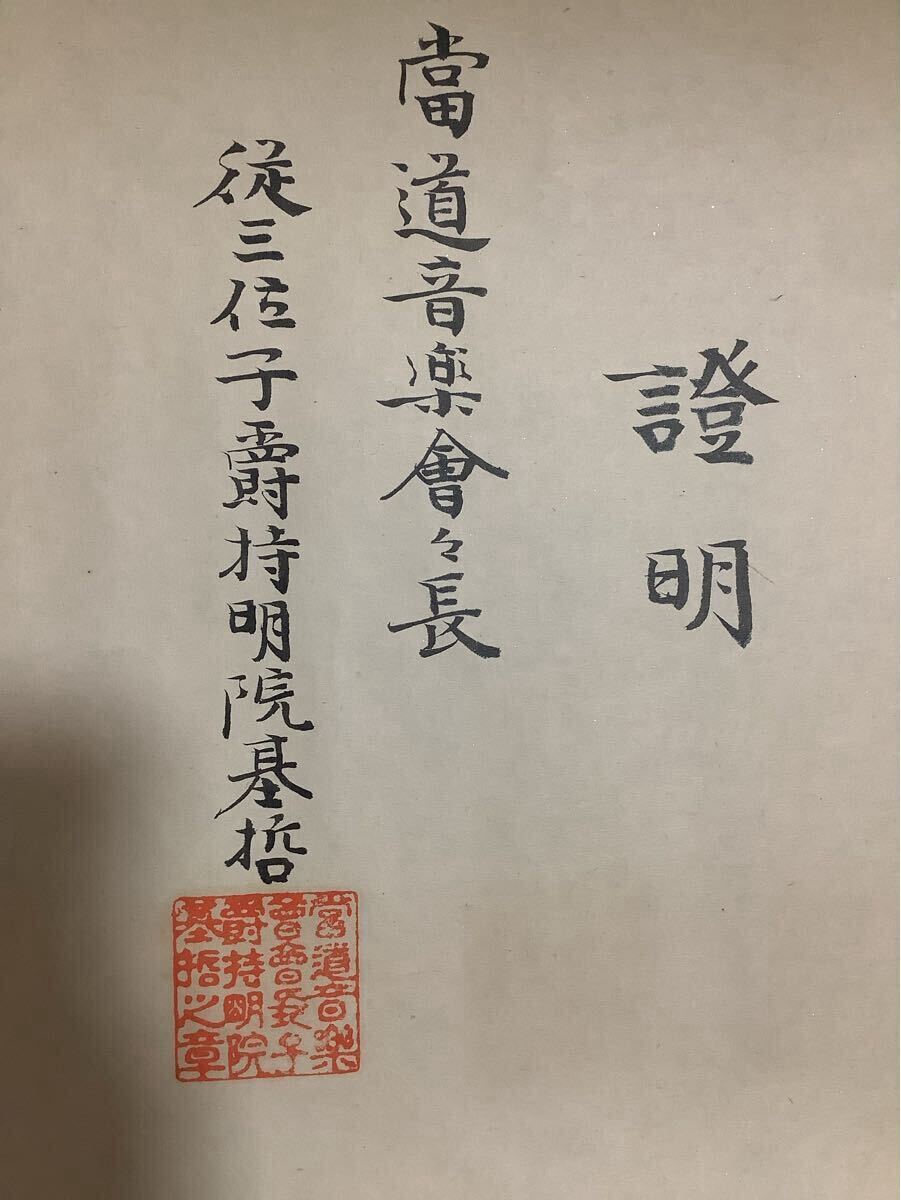 證明
當道音楽會々長
従三位子爵持明院基哲
當道音樂
會會長子
爵持明院
基哲之章